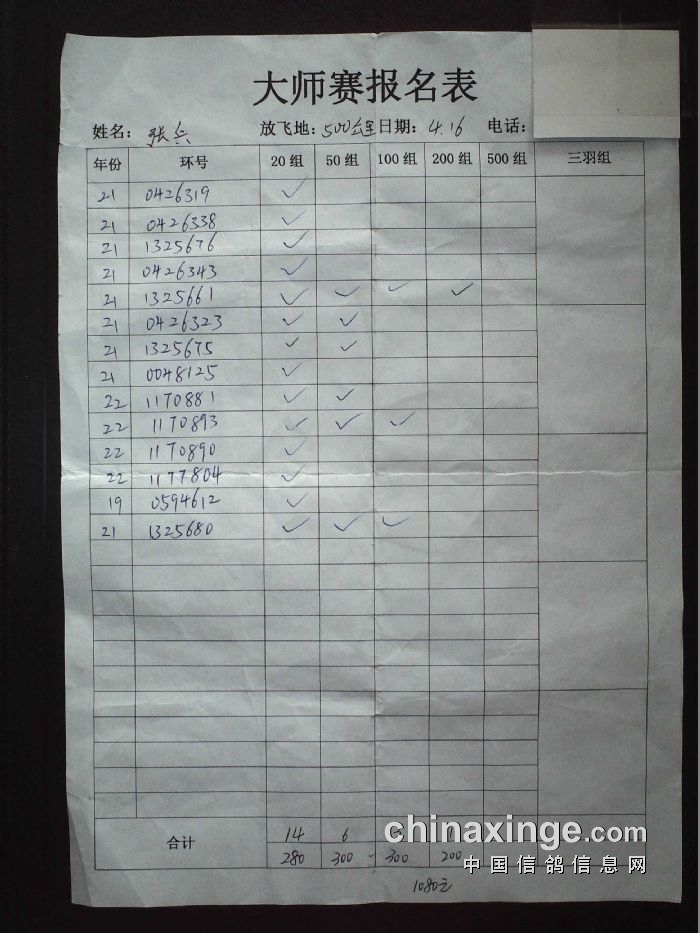 大师赛报名表
姓名：张兵 放飞地：500公里 日期：4.16 电话：
年份 环号 20组 50组 100组 200组 500组 三羽组
21 0426319 ✓
21 0426338 ✓
21 1325676 ✓
21 0426343 ✓
21 1325661 ✓ ✓ ✓ ✓
21 0426323 ✓ ✓
21 1325675 ✓ ✓
21 0048125 ✓
22 1170881 ✓ ✓
22 1170893 ✓ ✓ ✓
22 1170890 ✓
22 1177804 ✓
19 0594612 ✓
21 1325680 ✓ ✓ ✓
合计 14 6
280 300 300 200
1080元
chinaxinge.com
中国信鸽信息网